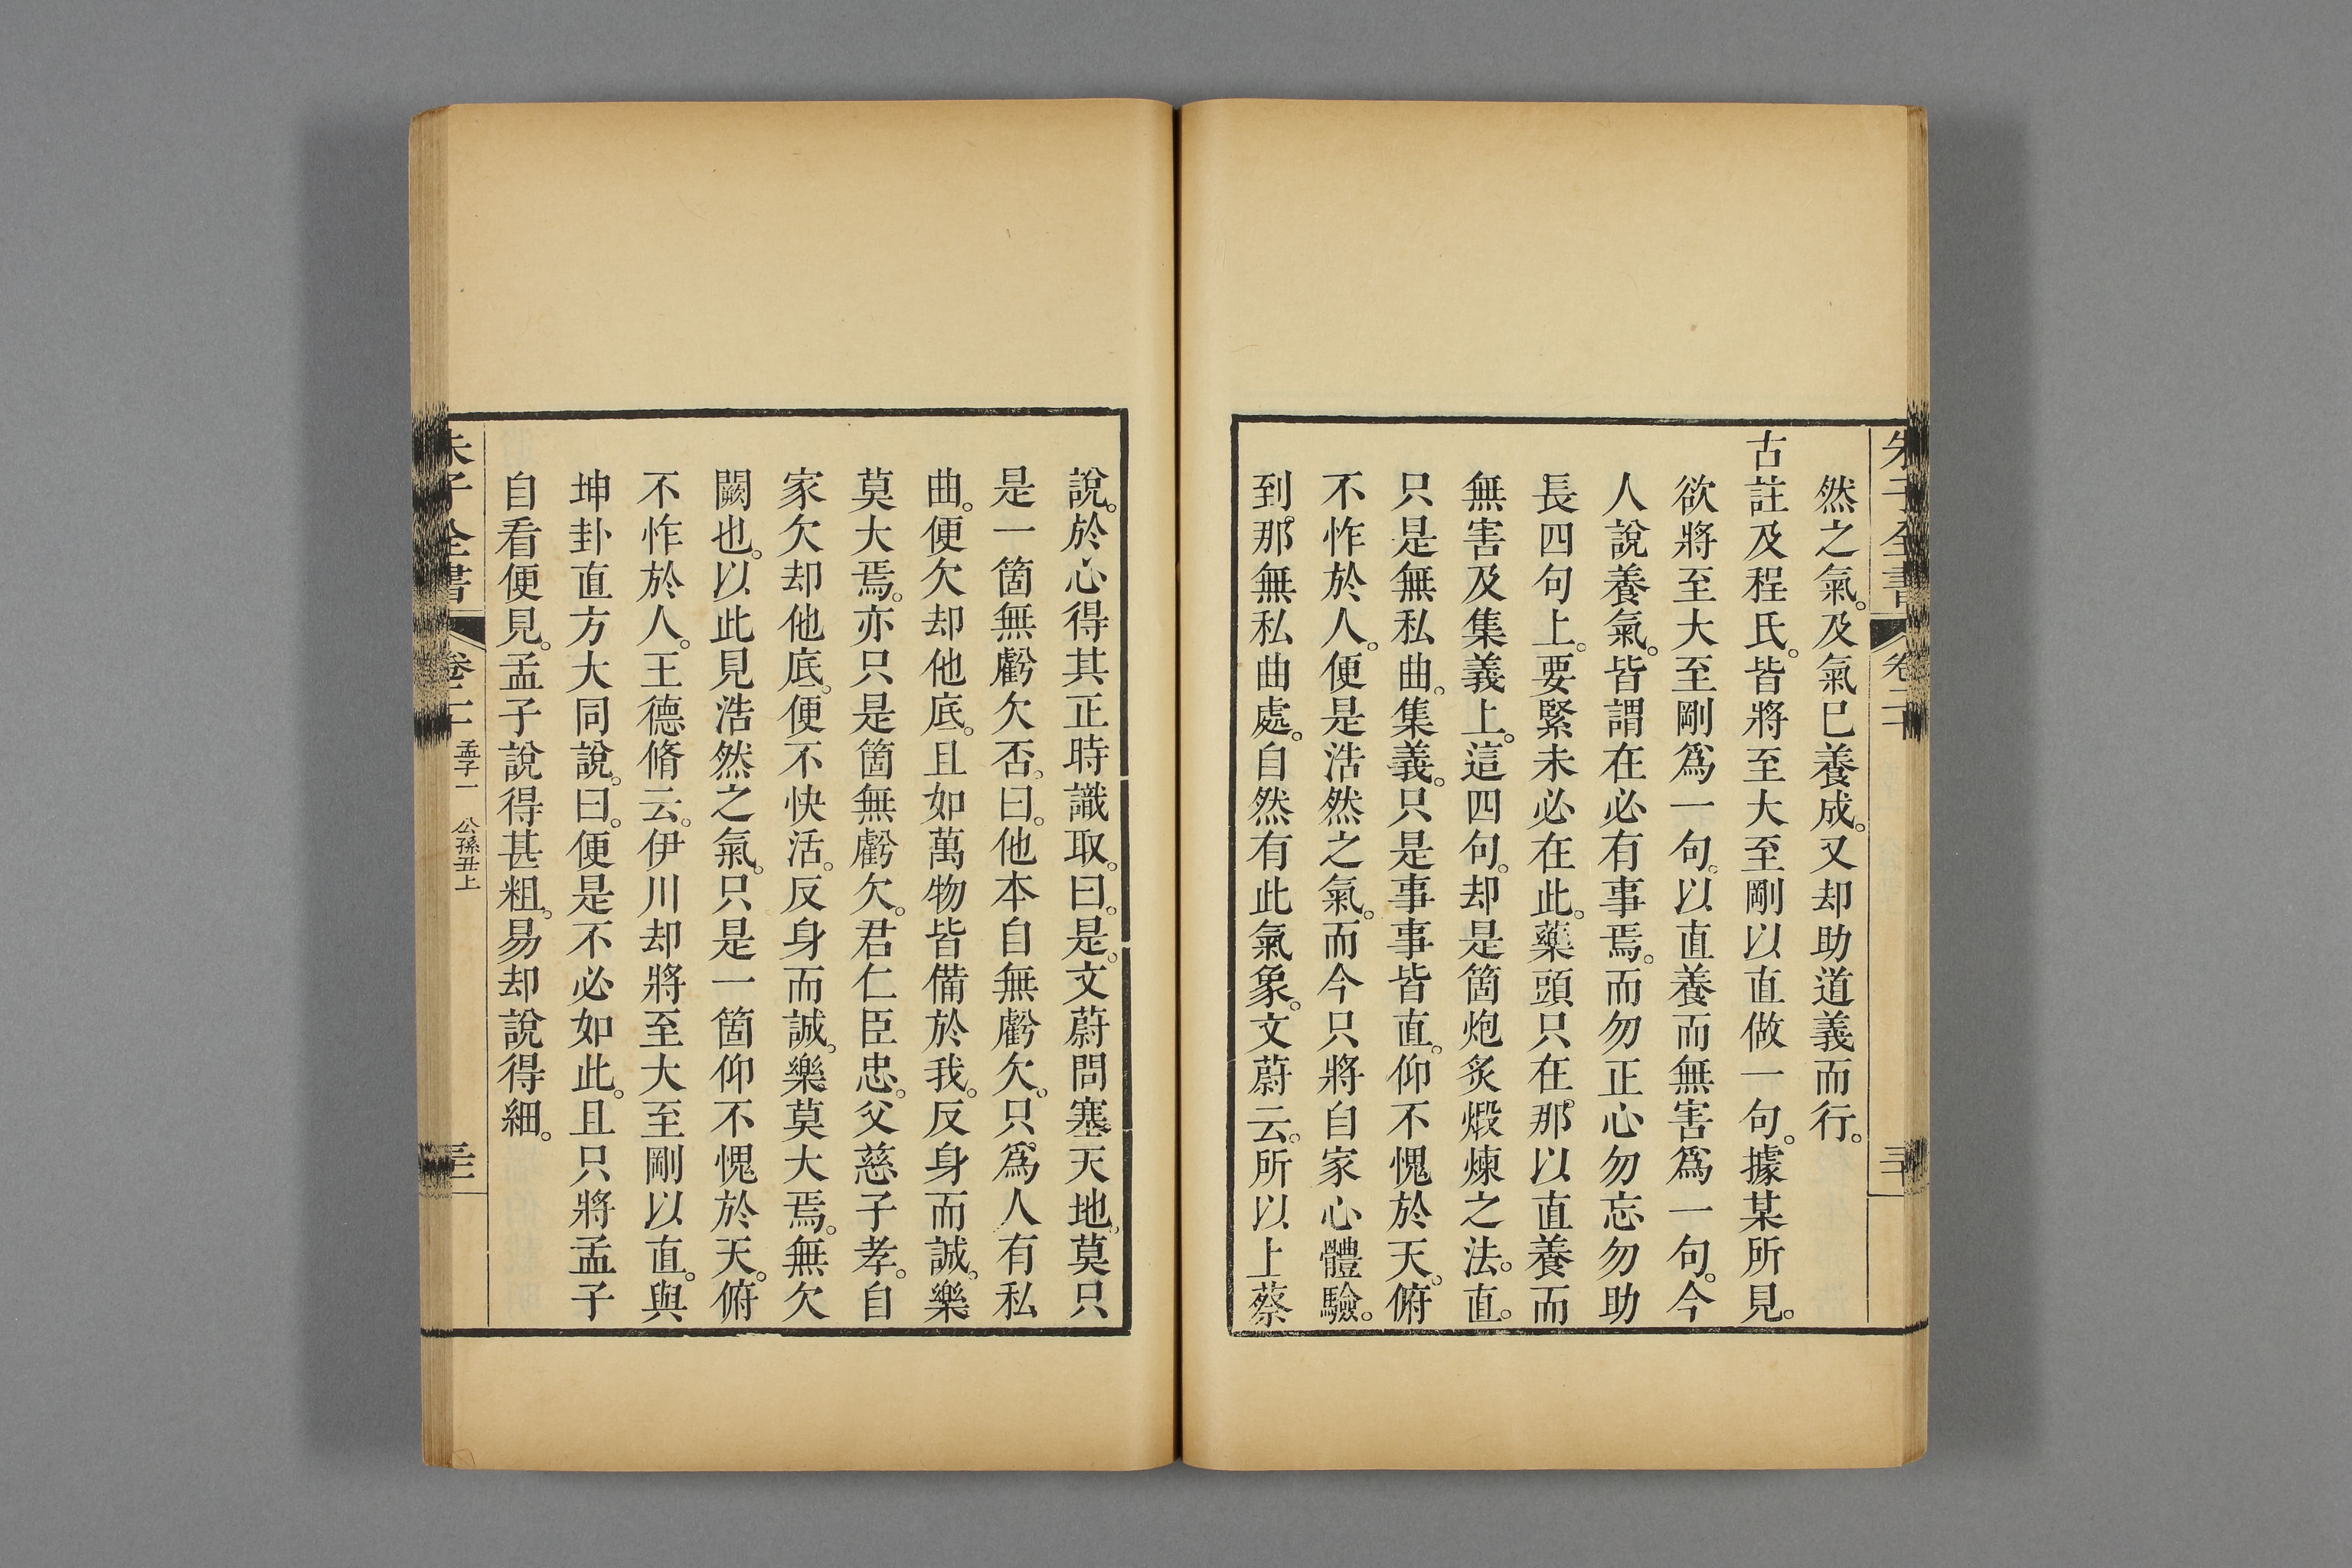 朱子全書 卷二十
然之氣。及氣已養成。又却助道義而行。
古註及程氏。皆將至大至剛以直做一句。據某所見。
欲將至大至剛爲一句。以直養而無害爲一句。今
人說養氣。皆謂在必有事焉。而勿正心勿忘勿助
長四句上。要緊未必在此。藥頭只在那以直養而
無害及集義上。這四句。却是箇炮炙煅煉之法。直。
只是無私曲。集義。只是事事皆直。仰不愧於天。俯
不怍於人。便是浩然之氣。而今只將自家心體驗。
到那無私曲處。自然有此氣象。文蔚云。所以上蔡
說。於心得其正時識取。曰。是。文蔚問塞天地。莫只
是一箇無虧欠否。曰。他本自無虧欠。只爲人有私
曲。便欠却他底。且如萬物皆備於我。反身而誠。樂
莫大焉。亦只是箇無虧欠。君仁臣忠。父慈子孝。自
家欠却他底。便不快活。反身而誠。樂莫大焉。無欠
闕也。以此見浩然之氣。只是一箇仰不愧於天。俯
不怍於人。王德脩云。伊川却將至大至剛以直。與
坤卦直方大同說。曰。便是不必如此。且只將孟子
自看便見。孟子說得甚粗。易却說得細。
朱子全書 卷二十 孟子一 公孫丑上